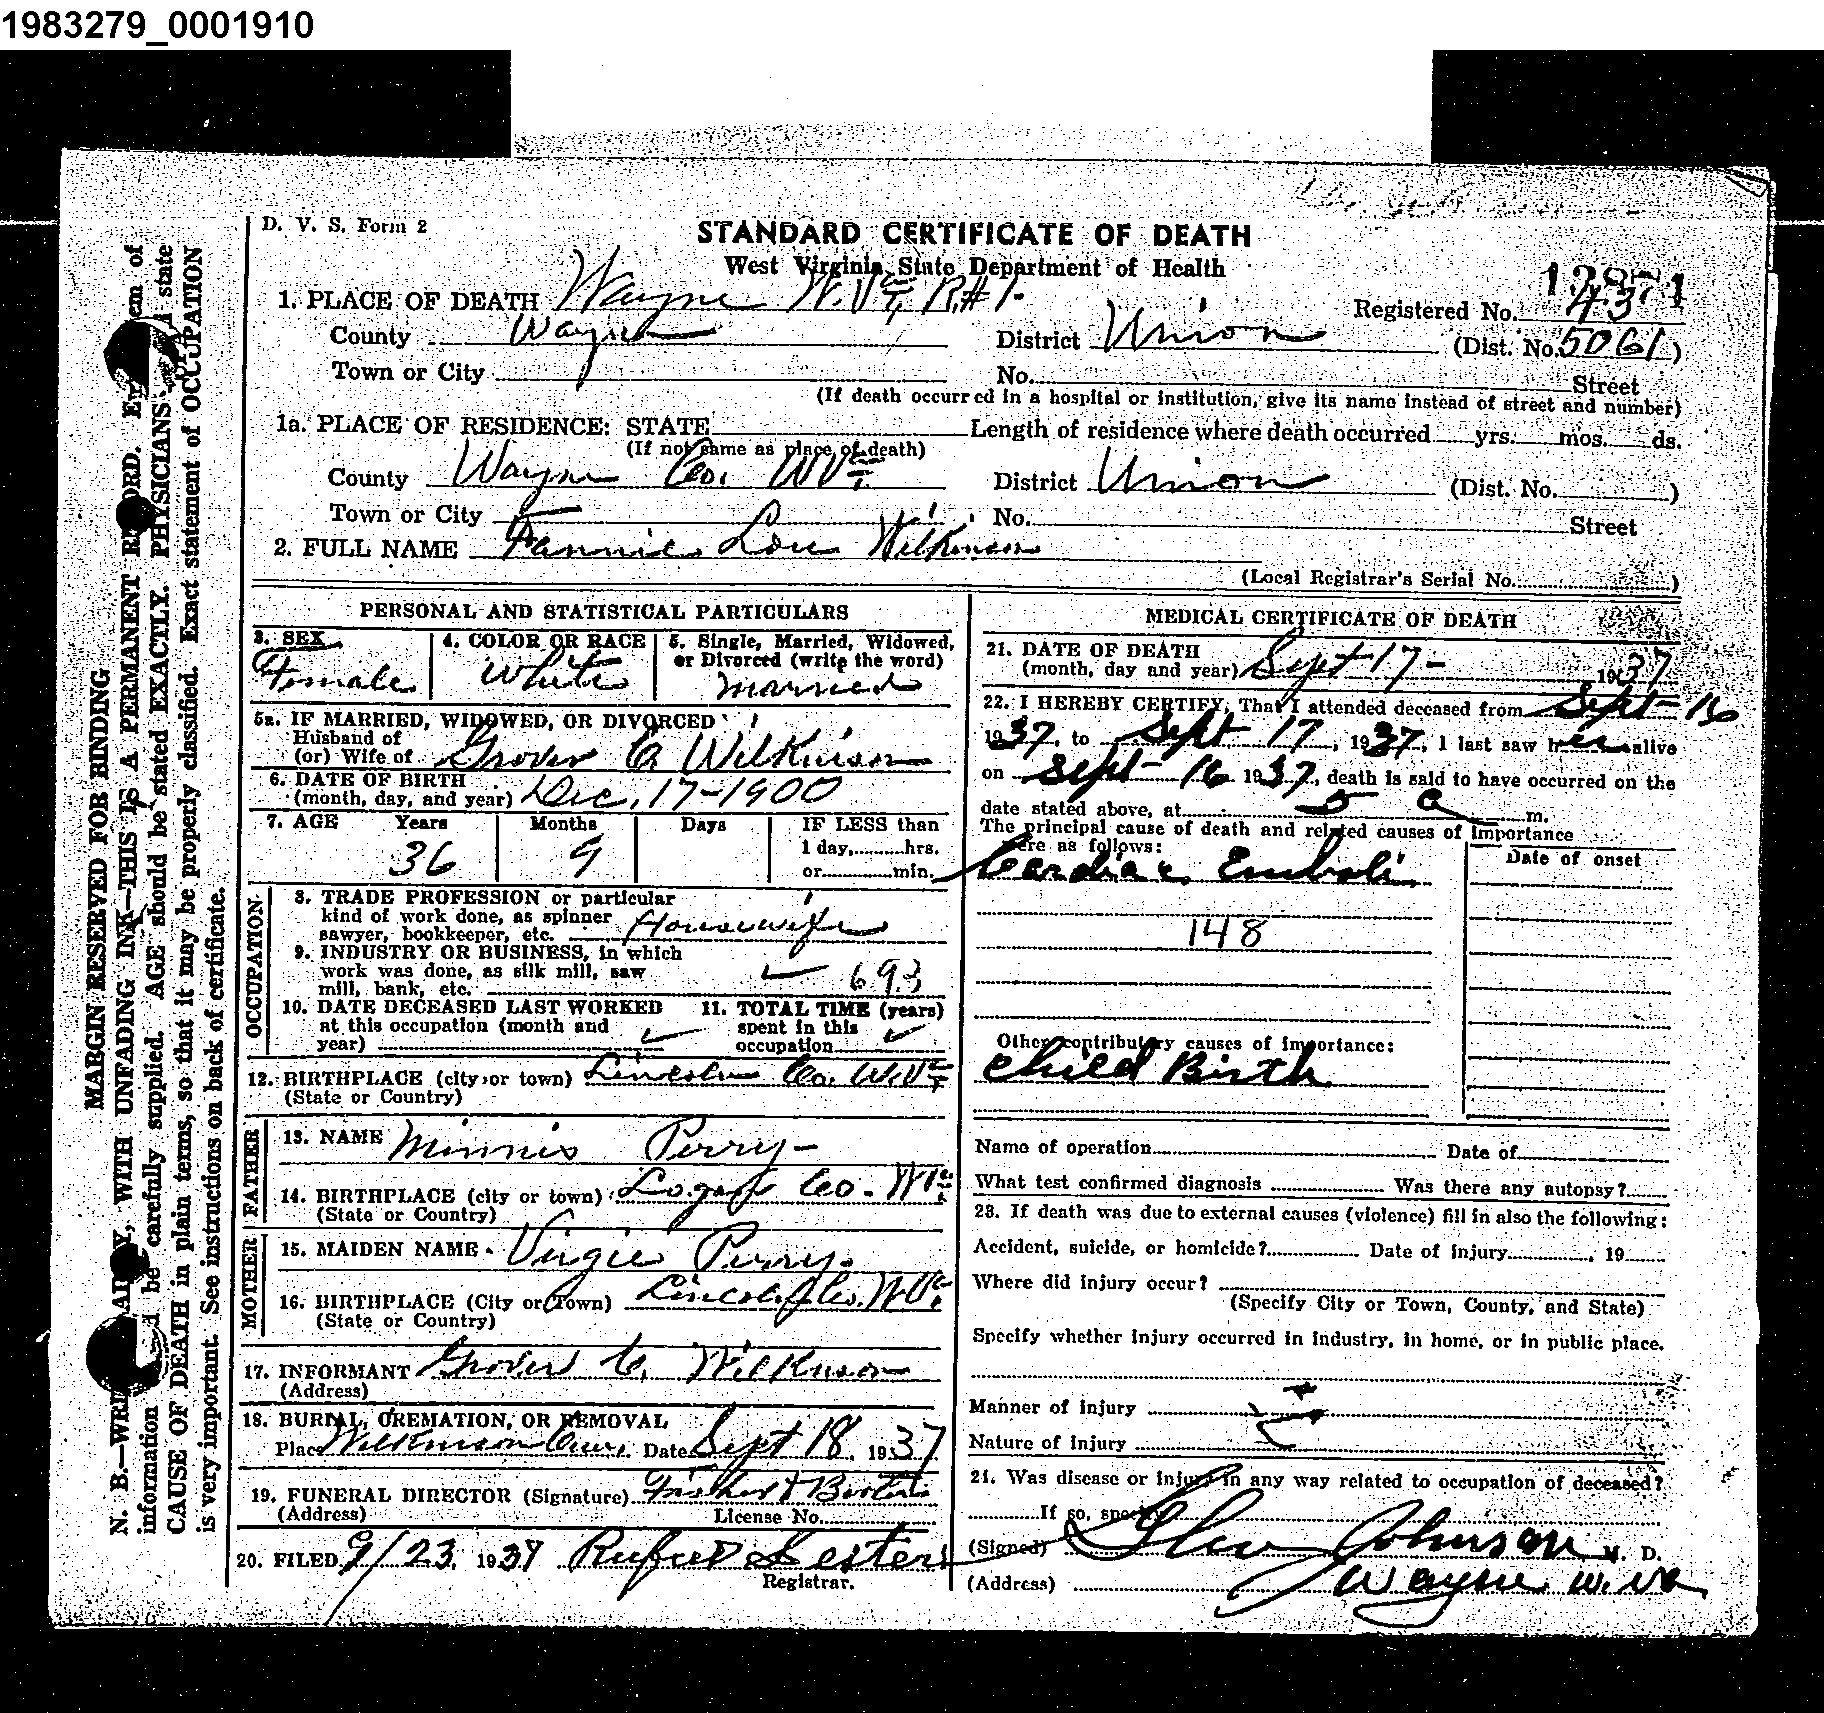 1983279_0001910
D. V. S. Form 2
STANDARD CERTIFICATE OF DEATH
West Virginia State Department of Health
12871
1. PLACE OF DEATH Wayne W.Va R#1
Registered No. 43
County Wayne District Union (Dist. No. 5061)
Town or City No. Street
(If death occurred in a hospital or institution, give its name instead of street and number)
1a. PLACE OF RESIDENCE: STATE Length of residence where death occurred yrs. mos. ds.
(If not same as place of death)
County Wayne Co. W Va District Union (Dist. No. )
Town or City No. Street
2. FULL NAME Fannie Lou Wilkinson
(Local Registrar's Serial No. )
PERSONAL AND STATISTICAL PARTICULARS
3. SEX Female
4. COLOR OR RACE White
5. Single, Married, Widowed, or Divorced (write the word) Married
5a. IF MARRIED, WIDOWED, OR DIVORCED
Husband of
(or) Wife of Grover C Wilkinson
6. DATE OF BIRTH
(month, day, and year) Dec. 17-1900
7. AGE Years Months Days IF LESS than
36 9 1 day, hrs.
or min.
OCCUPATION
8. TRADE PROFESSION or particular
kind of work done, as spinner
sawyer, bookkeeper, etc. Housewife
9. INDUSTRY OR BUSINESS, in which
work was done, as silk mill, saw
mill, bank, etc. 693
10. DATE DECEASED LAST WORKED
at this occupation (month and
year)
11. TOTAL TIME (years)
spent in this
occupation
12. BIRTHPLACE (city or town) Lincoln Co. W.Va
(State or Country)
FATHER
13. NAME Minnis Perry
14. BIRTHPLACE (city or town) Logan Co. W Va
(State or Country)
MOTHER
15. MAIDEN NAME Virgie Perry
16. BIRTHPLACE (City or Town) Lincoln Co. W.Va.
(State or Country)
17. INFORMANT Grover C. Wilkinson
(Address)
18. BURIAL, CREMATION, OR REMOVAL
Place Wilkinson Cem. Date Sept 18, 1937
19. FUNERAL DIRECTOR (Signature)
(Address) License No.
20. FILED 9/23, 1937 Rufus Lester
Registrar.
MEDICAL CERTIFICATE OF DEATH
21. DATE OF DEATH
(month, day and year) Sept 17- 1937
22. I HEREBY CERTIFY, That I attended deceased from Sept 16
1937, to Sept 17, 1937, I last saw her alive
on Sept 16 1937, death is said to have occurred on the
date stated above, at 5 a m.
The principal cause of death and related causes of importance
were as follows: Date of onset
Cardiac Emboli
148
Other contributory causes of importance:
Child Birth
Name of operation Date of
What test confirmed diagnosis Was there any autopsy?
23. If death was due to external causes (violence) fill in also the following:
Accident, suicide, or homicide? Date of injury , 19
Where did injury occur?
(Specify City or Town, County, and State)
Specify whether injury occurred in industry, in home, or in public place.
Manner of injury
Nature of injury
24. Was disease or injury in any way related to occupation of deceased?
If so, specify
(Signed) Johnson M. D.
(Address) Wayne W. Va
MARGIN RESERVED FOR BINDING
N. B.—WRITE PLAINLY, WITH UNFADING INK—THIS IS A PERMANENT RECORD. Every item of
information should be carefully supplied. AGE should be stated EXACTLY. PHYSICIANS should state
CAUSE OF DEATH in plain terms, so that it may be properly classified. Exact statement of OCCUPATION
is very important. See instructions on back of certificate.